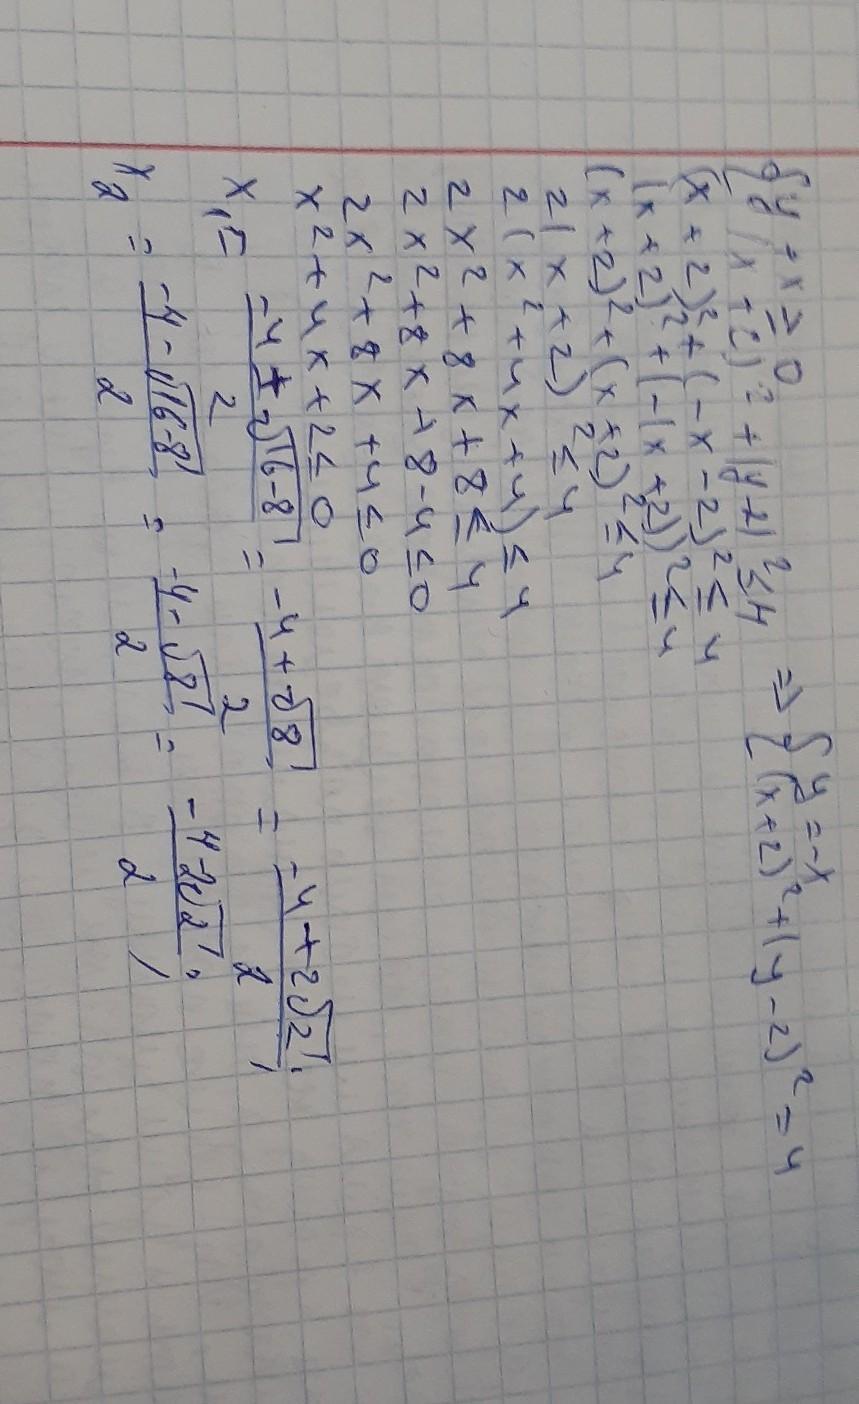 { y + x ≥ 0
(x + 2)² + (y - 2)² ≤ 4 => { y = -x
(x+2)² + (y - 2)² = 4
(x + 2)² + (-x - 2)² ≤ 4
(x + 2)² + (-(x + 2))² ≤ 4
(x + 2)² + (x + 2)² ≤ 4
2(x + 2)² ≤ 4
2(x² + 4x + 4) ≤ 4
2x² + 8x + 8 ≤ 4
2x² + 8x + 8 - 4 ≤ 0
2x² + 8x + 4 ≤ 0
x² + 4x + 2 ≤ 0
x₁ = (-4 + √16-8)/2 = (-4 + √8)/2 = (-4 + 2√2)/2;
x₂ = (-4 - √16-8)/2 = (-4 - √8)/2 = (-4 - 2√2)/2;